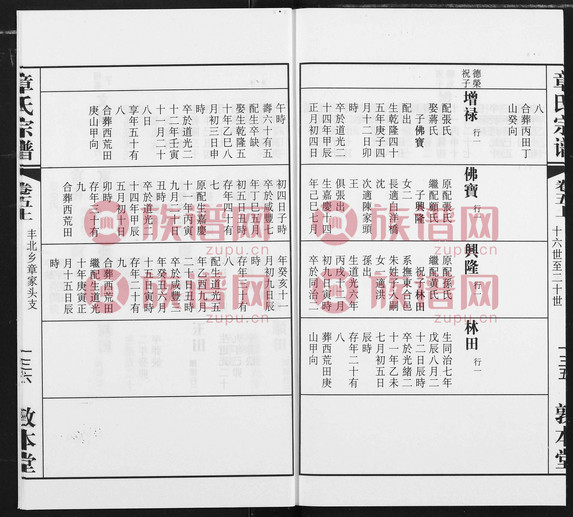 章氏宗谱
卷五上
十六世至二十世
一三五
敦本堂
八
合葬丙田丁
山癸向
德榮祝子
增禄 行一
配張氏
娶蔣氏
子佛寶
配出
生乾隆四十
五年庚子四
月十二日卯
時
卒於道光二
十四年甲辰
正月初四日
午時
壽六十有五
配生卒缺
娶生乾隆五
十年乙巳八
月初三日申
時
卒於道光二
十二年壬寅
十一月二十
八日
享年五十有
八
合葬西荒田
庚山甲向
佛寶 行一
原配張氏
繼配顧氏
子興隆
女二
長適白洋橋
沈
次適陳家頭
王
俱張出
生嘉慶十四
年己巳七月
初四日子時
卒於咸豐七
年丁巳五月
初五日丑時
存年四十有
七
原配生嘉慶
十一年丙寅
九月二十日
丑時
卒於道光二
十四年甲辰
五月初十日
卯時
存年三十有
九
合葬西荒田
興隆 行一
原配孫氏
繼配黄氏
祝子林田
系撫東合邑
朱姓子入嗣
女一適洪
孫出
生道光六年
丙戌十一月
初九日寅時
卒於同治二
年癸亥十一
月初九日辰
時
存年三十有
八
配生道光五
年乙酉九月
二十日丑時
卒於咸豐三
年癸丑六月
十五日寅時
存年二十有
九
繼配生道光
十年庚寅正
月十五日辰
林田 行一
生同治七年
戊辰八月二
十二日辰時
卒於光緒二
十一年乙未
七月初五日
辰時
存年二十有
八
葬西荒田庚
山甲向
章氏宗譜
卷五上
丰北乡章家头支
一三六
敦本堂
族譜网
zupu.cn